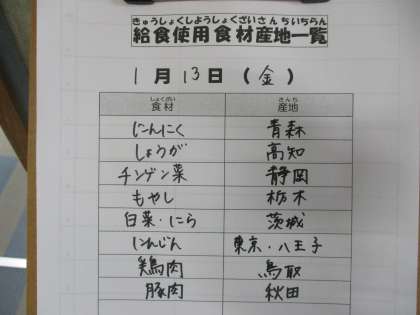 きゅうしょくしようしょくざいさんちいちらん
給食使用食材産地一覧
1月13日(金)
しょくざい さんち
食材 産地
にんにく 青森
しょうが 高知
チンゲン菜 静岡
もやし 栃木
白菜・にら 茨城
にんじん 東京・八王子
鶏肉 鳥取
豚肉 秋田